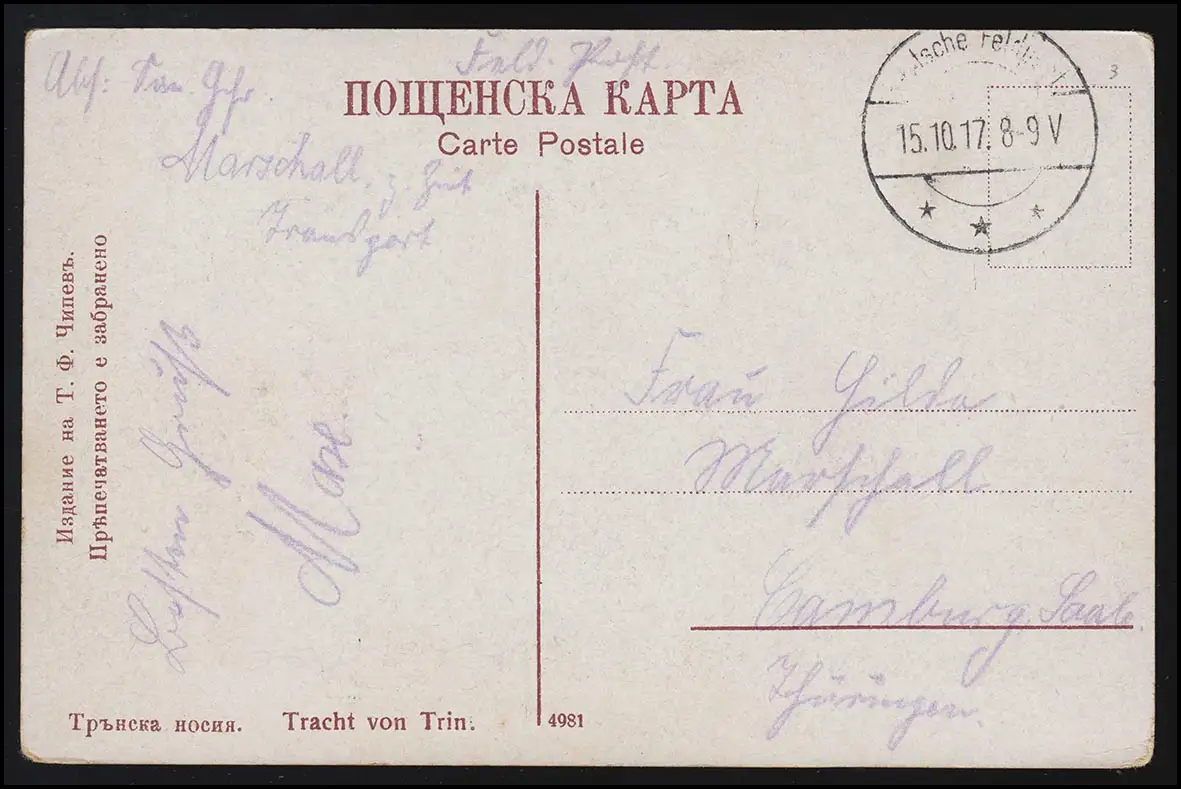 Feld-Post.
Abs: San. Gefr.
ПОЩЕНСКА КАРТА
Carte Postale
Marschall. z. Zeit
Transport
Deutsche Feldpost
15.10.17. 8-9 V
3
Издание на Т. Ф. Чипевъ.
Прѣпечатването е забранено
Besten Gruß
Max.
Frau Hilda
Marschall
Camburg. Saale.
Thüringen.
Трънска носия. Tracht von Trin.
4981